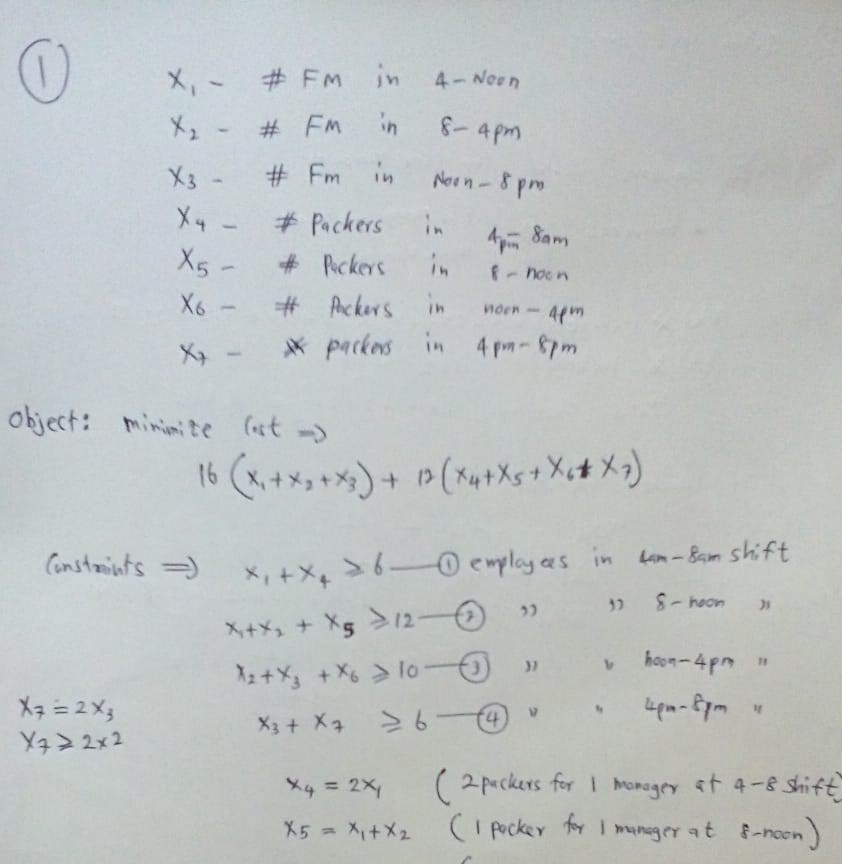 ①
X₁ - # FM in 4-Noon
X₂ - # FM in 8-4pm
X₃ - # Fm in Noon-8pm
X₄ - # Packers in 4pm- 8am
X₅ - # Packers in 8-noon
X₆ - # Packers in noon-4pm
X₇ - # packers in 4pm-8pm
Object: minimize Cost ⇒
16 (X₁+X₂+X₃) + 12 (X₄+X₅+X₆+X₇)
Constraints ⇒ X₁+X₄ ≥ 6 — ① employees in 4am-8am shift
X₁+X₂ + X₅ ≥ 12 — ② ,, ,, 8-noon ,,
X₂+X₃ + X₆ ≥ 10 — ③ ,, " noon-4pm "
X₃ + X₇ ≥ 6 — ④ " " 4pm-8pm "
X₇ = 2X₃
X₇ ≥ 2x2
X₄ = 2X₁ (2 packers for 1 manager at 4-8 shift)
X₅ = X₁+X₂ (1 packer for 1 manager at 8-noon)